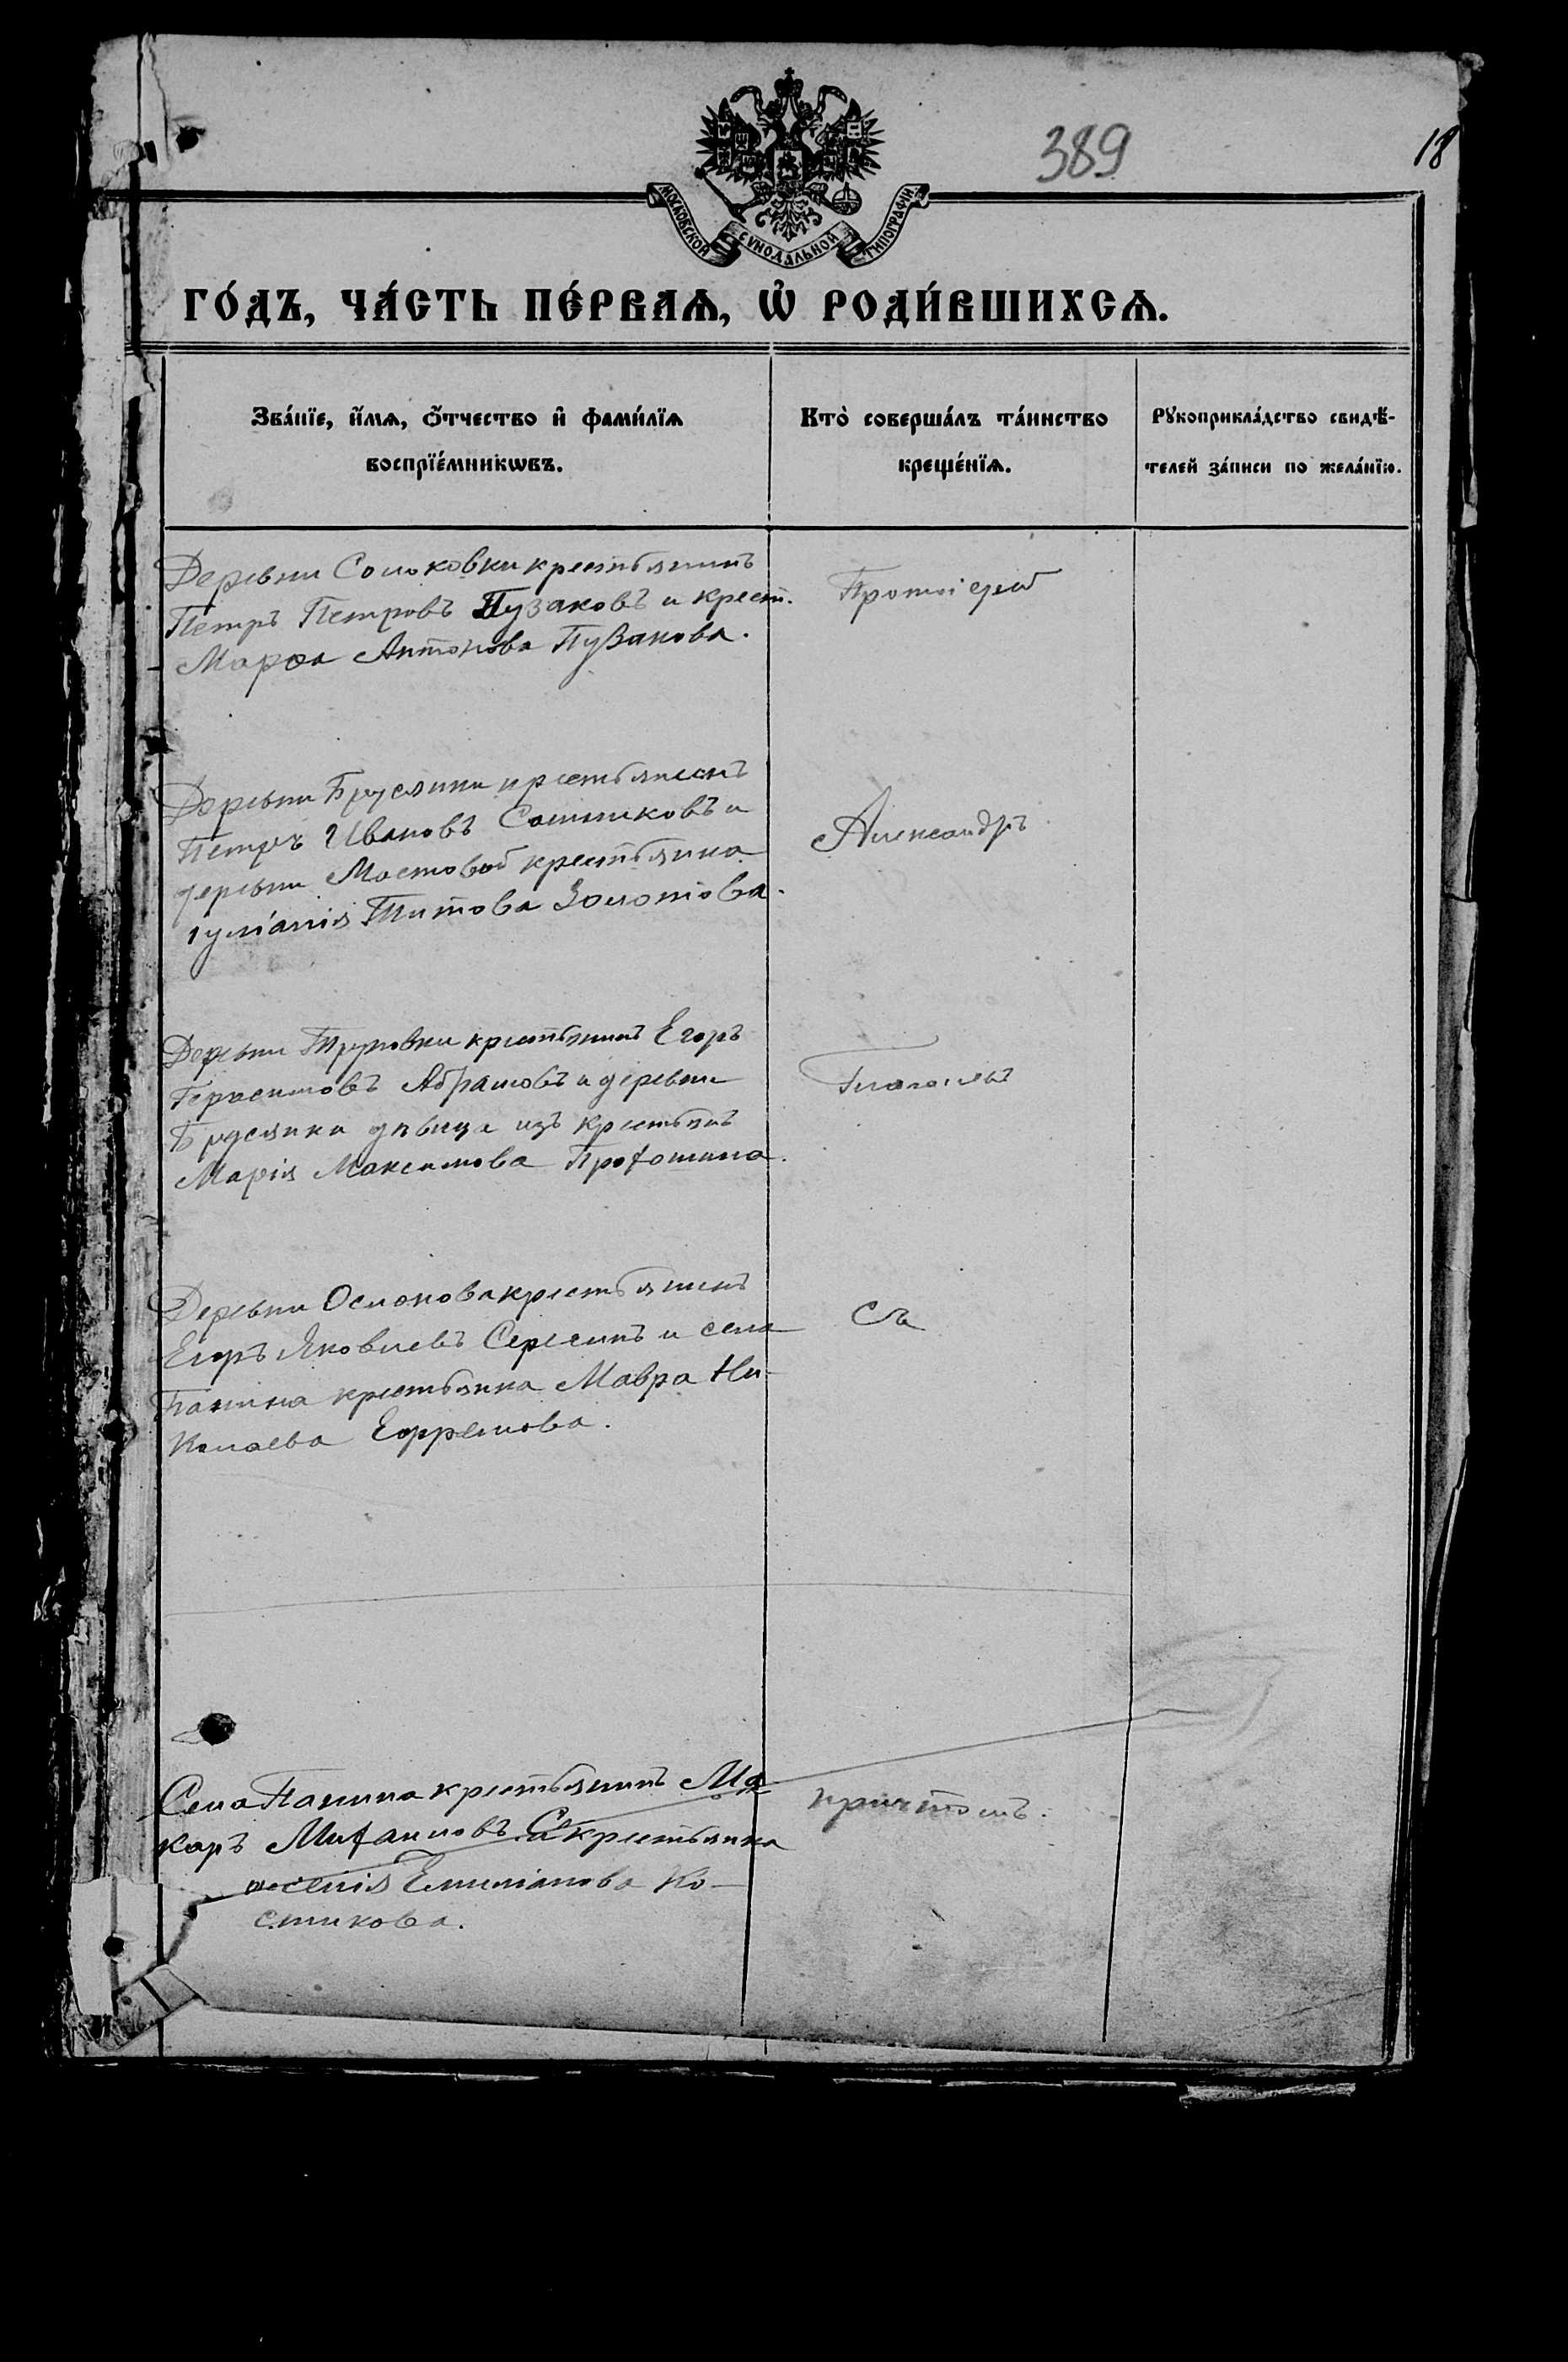 389
18
МОСКОВСКОЙ СѴНОДАЛЬНОЙ ТИПОГРАФІИ
ГО́ДЪ, ЧА́СТЬ ПЕ́РВАѦ, Ѡ҆ РОДИ́ВШИХСѦ.
Зва́нїе, и҆́мѧ, ѻ҆́тчество и҆ фами́лїѧ
воспрїе́мникѡвъ.
Кто̀ соверша́лъ та́инство
креще́нїѧ.
Рꙋкоприкла́дство свидѣ́-
телей за́писи по жела́нїю.
Деревни Солоковки крестьянинъ
Петръ Петровъ Пузаковъ и крест.
Марѳа Антонова Пузакова.
Протоіерей
Деревни Брусянки крестьянинъ
Петръ Ивановъ Сошниковъ и
деревни Мостовой крестьянка
Іуліанія Титова Золотова.
Александръ
Деревни крестьянинъ Егоръ
Герасимовъ Абрамовъ и деревни
Брусянки дѣвица изъ крестьянъ
Марія Максимова Профошина.
Глаголевъ
Деревни крестьянинъ
Егоръ Яковлевъ и села
Панина крестьянка Мавра Ни-
колаева Ефремова.
съ
Села Панина крестьянинъ Ма
каръ Михаиловъ крестьянка
Емиліанова Ко-
стикова.
причтомъ.